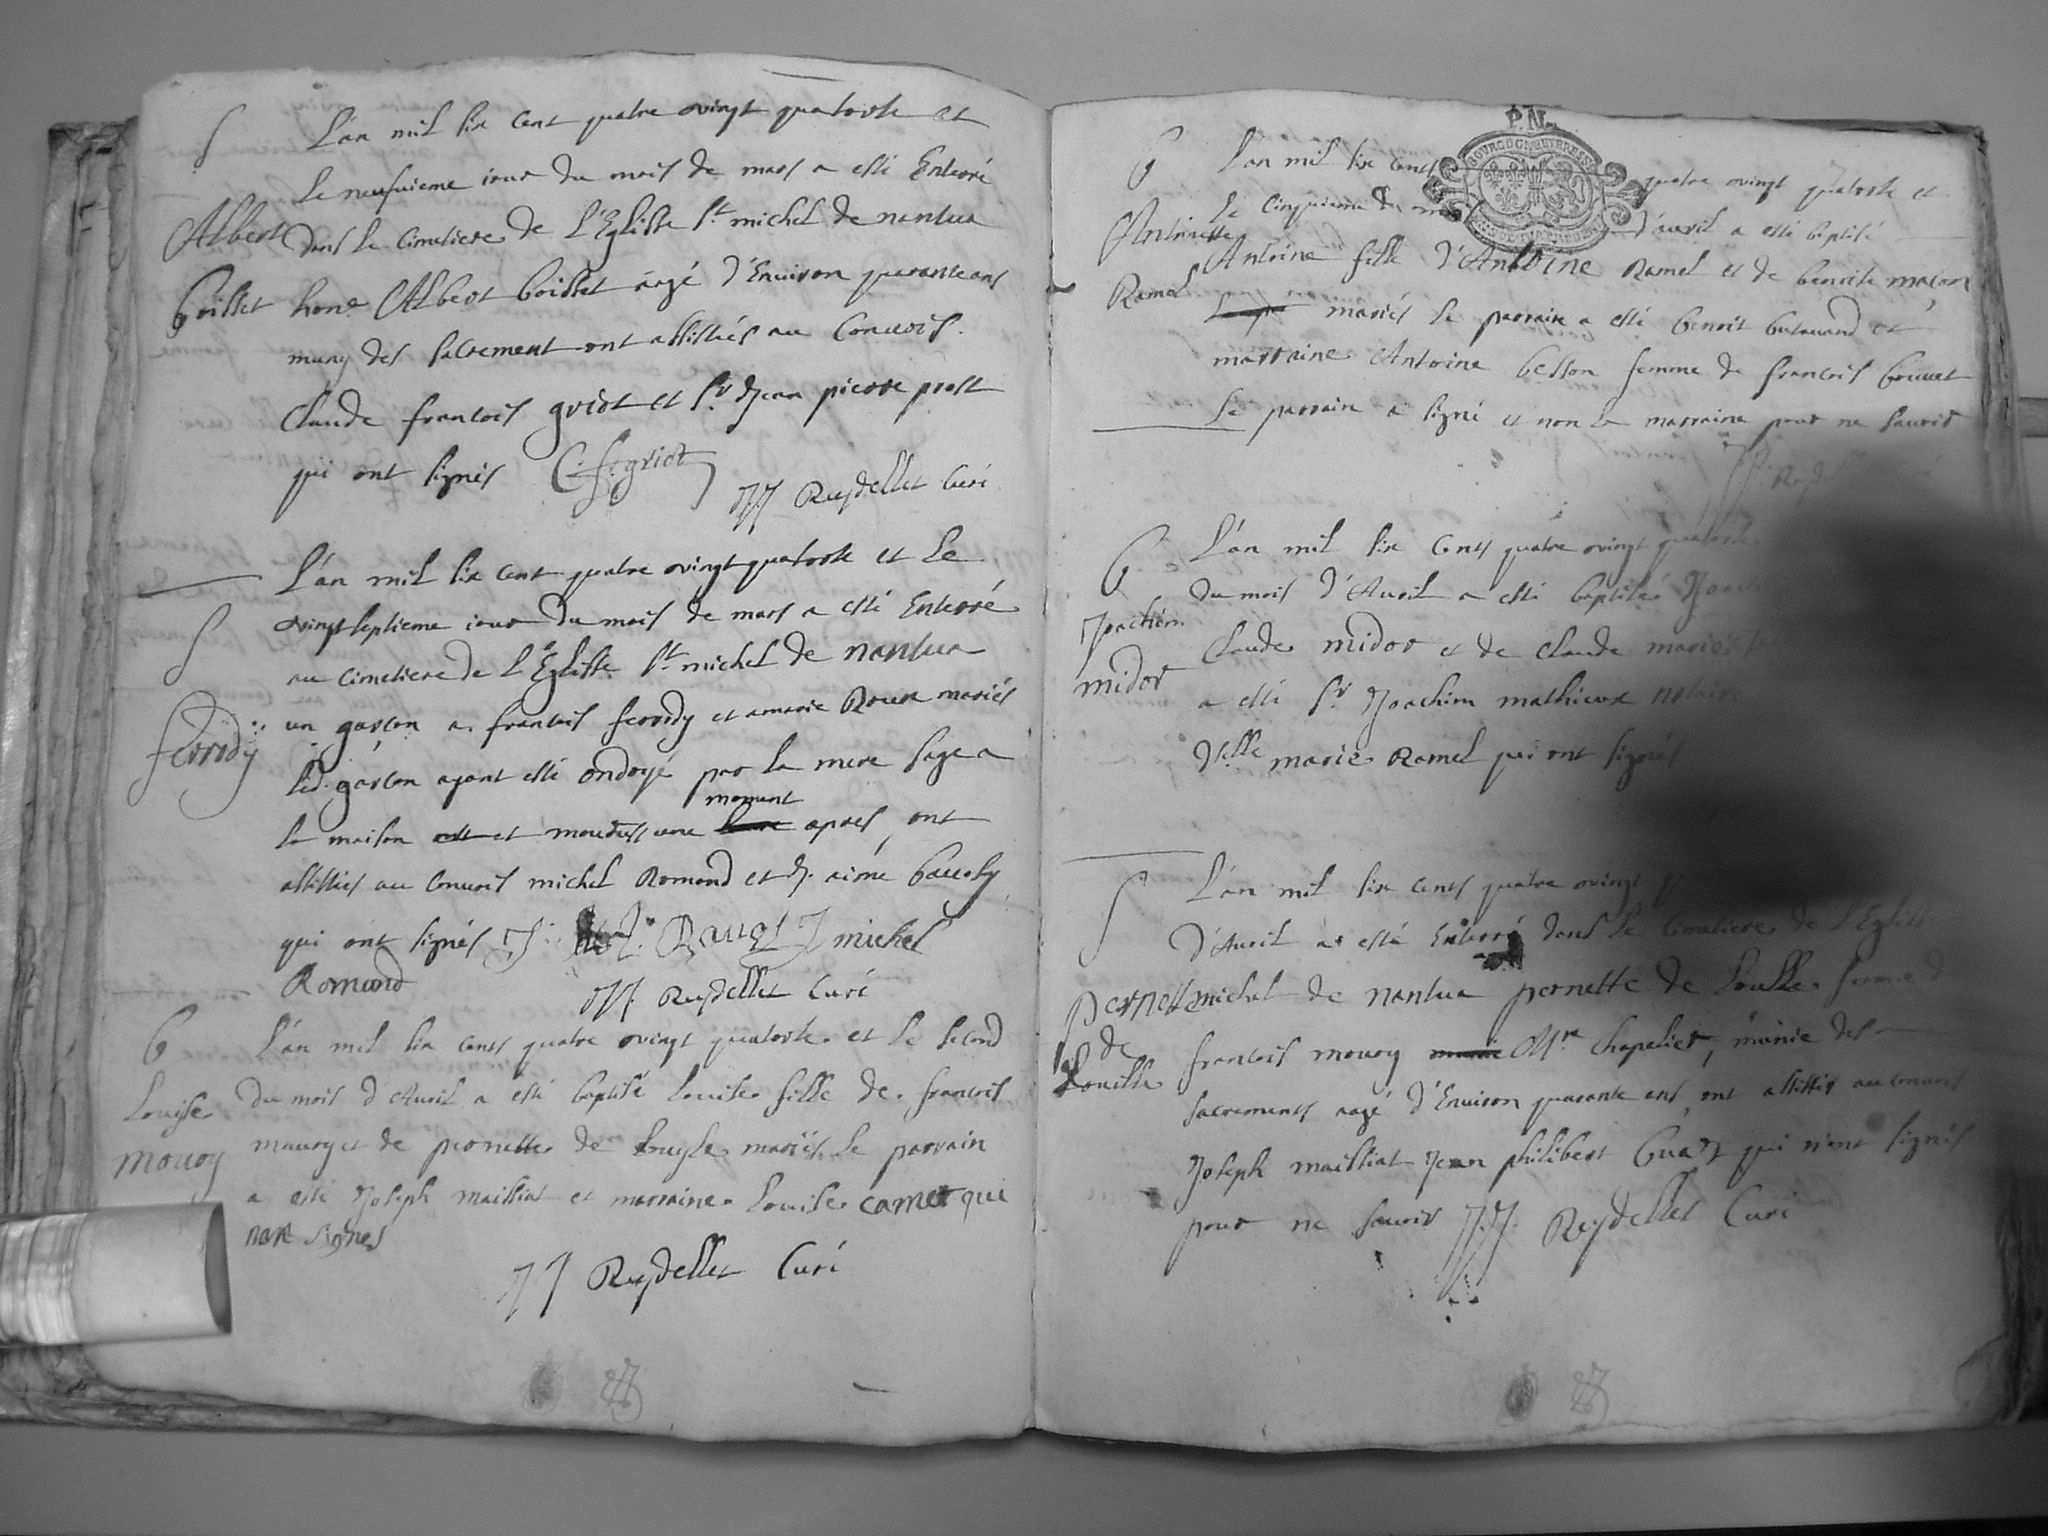 S
L'an mil six cent quatre vingt quatorse et
le neufuieme iour du mois de mars a esté Enterré
Albert
dans le Cimetiere de l'Eglisse St michel de nantua
boisset
hone Albert boisset aagé d'Enuiron quarante ans
muny des sacrement ont assistés au Conuois
Claude francois griot et Sr Jean pierre prost
qui ont signés C. f. griot
JJ Reydellet Curé
L'an mil six cent quatre vingt quatorse et le
vingt septieme iour du mois de mars a esté Enterré
S
au Cimetiere de l'Eglisse St michel de nantua
ferrody
un garson a francois ferrody et a marie Roux mariés
led. garson ayant esté ondoyé par la mere sage a
moment
la maison et apres, ont
assistés au Conuois michel Romand et J. aimé bauoly
qui ont signés michel
Romand
JJ Reydellet Curé
b
L'an mil six cents quatre vingt quatorse et le second
Louise
du mois d'Auril a esté baptisé Louise fille de francois
mouoy
mouoy et de pernette de mariés le parrain
a esté Joseph mailliat et marraine Louise carnet qui
non signes
JJ Reydellet Curé
P.N.
b
L'an mil six cents quatre vingt quatorse et
le cinquieme du mois d'auril a esté baptisé
Antoinette
Antoine fille d'Antoine Ramel et de benoite maçon
Ramel
mariés le parrain a esté benoit et
marraine Antoine besson femme de francois bouuet
le parrain a signé et non la marraine pour ne sauoir
JJ
b
L'an mil six cents quatre vingt quatorse
du mois d'Auril a esté baptisé
Joachim
Claude midor et de Claude
midor
a esté Sr Joachim mathieux notaire
Delle marie Ramel qui ont signés
S
L'an mil six cents quatre vingt
d'Auril a esté Enterré dans le Cimetiere de l'Eglisse
Pernette
michel de nantua pernette de femme
de
francois mouoy Mre Chapelier, munie des
sacrements aagé d'Enuiron quarante ans, ont assistés au conuois
Joseph mailliat Jean philibert qui n'ont signés
pour ne sauoir JJ. Reydellet Curé